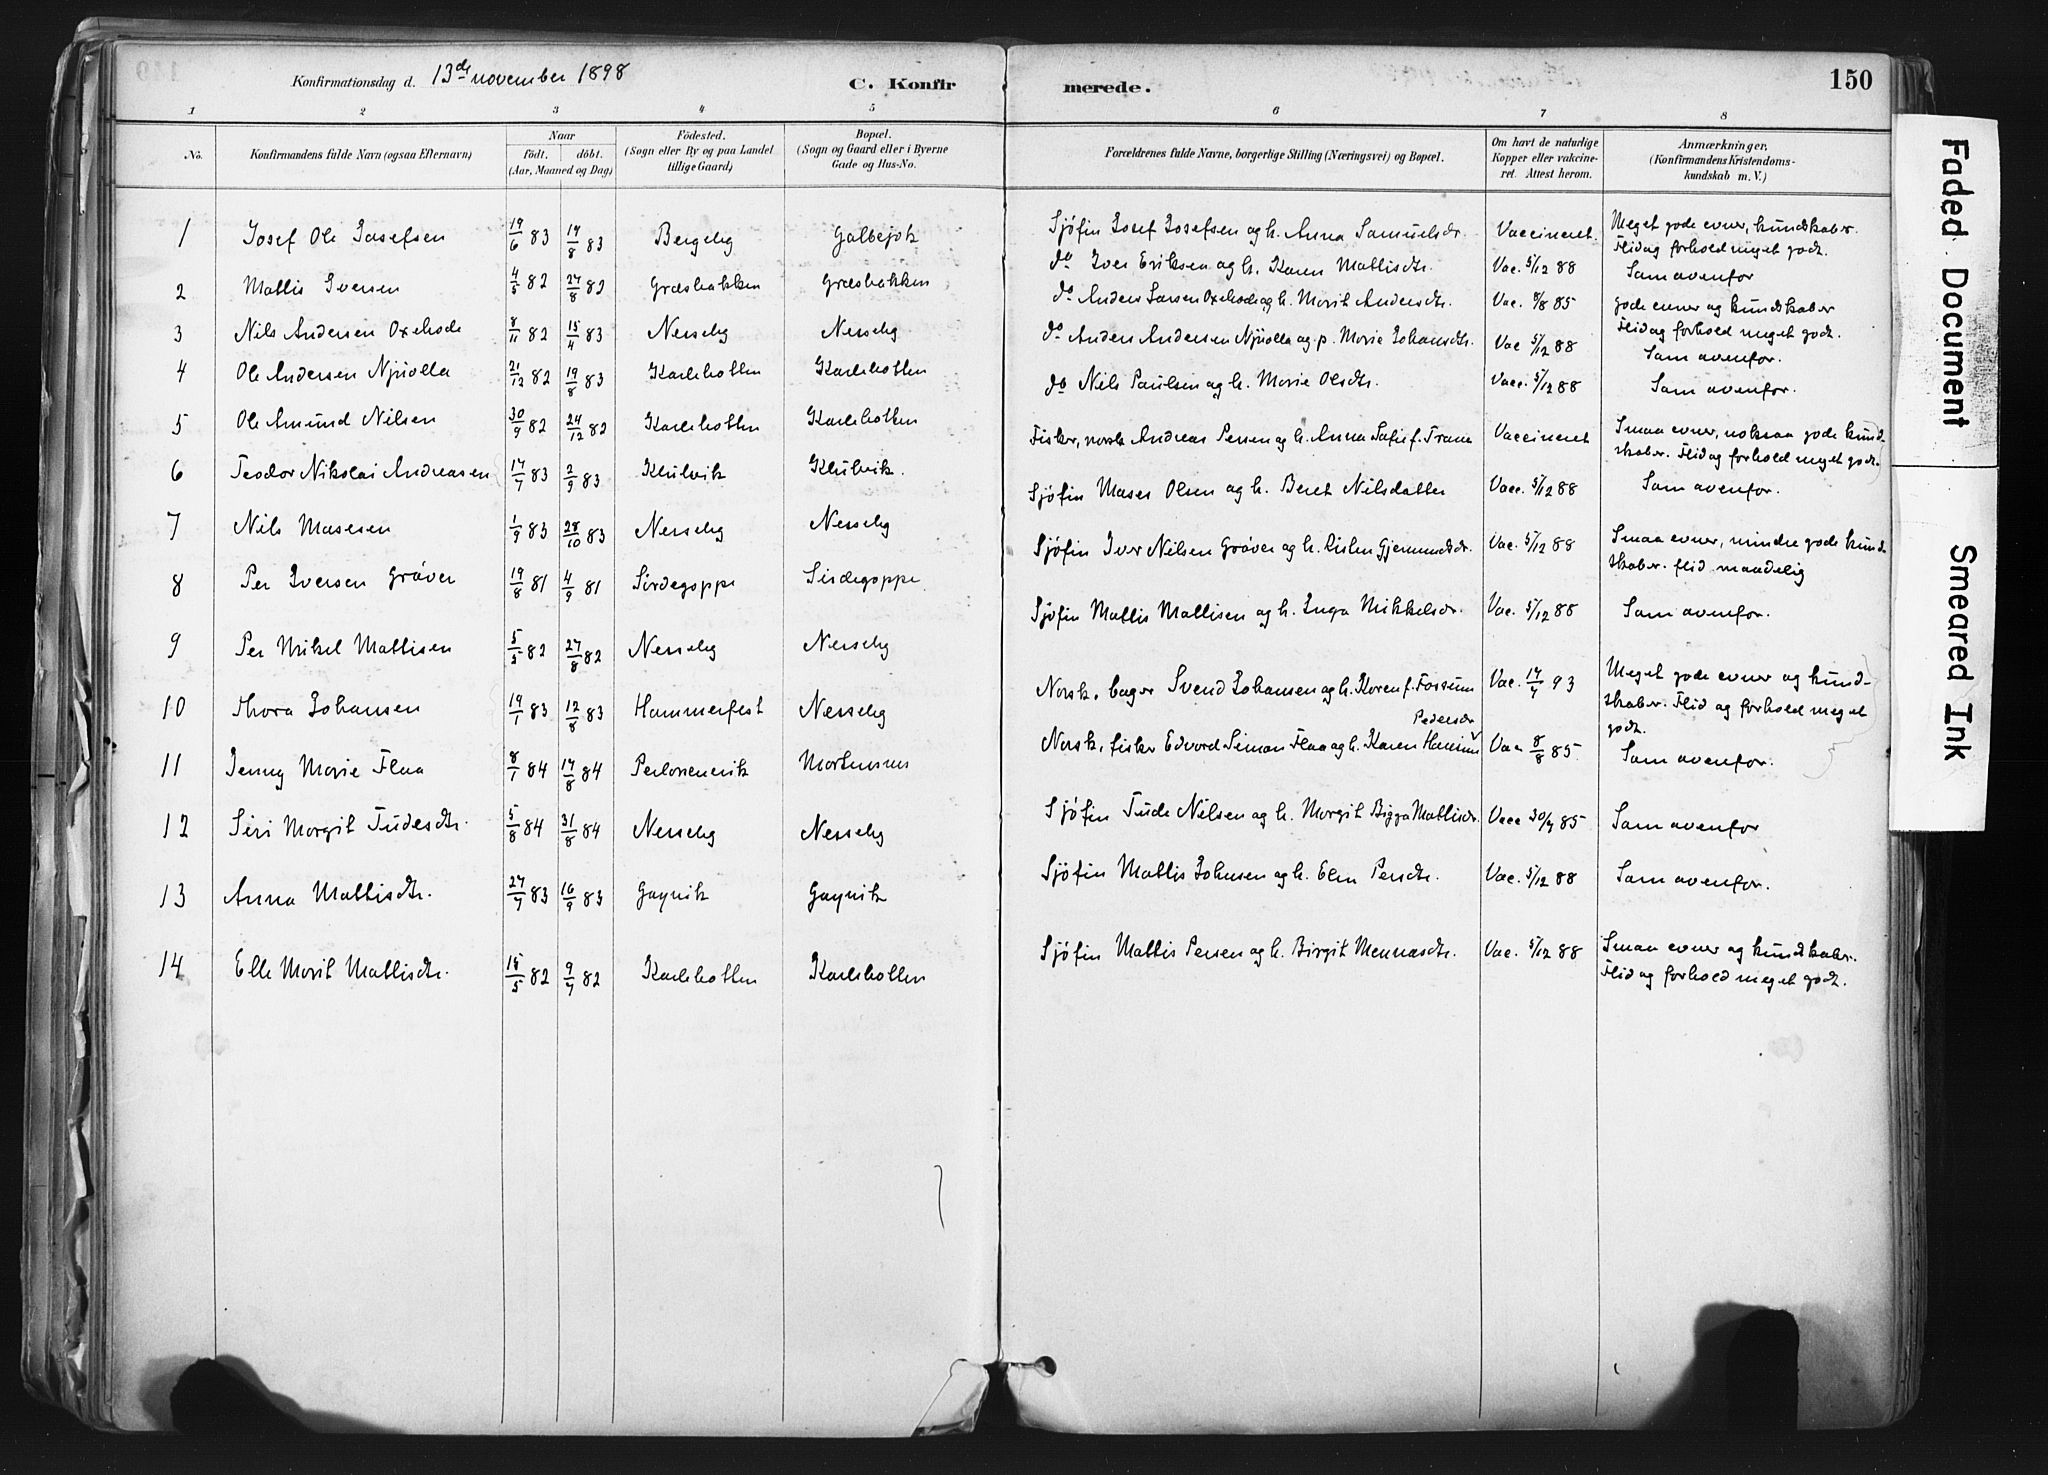 Konfirmationsdag d. 13de november 1898
C. Konfirmerede.
150
1 2 3 4 5 6 7 8
No.
Konfirmandens fulde Navn (ogsaa Efternavn)
Naar
födt. döbt.
(Aar, Maaned og Dag)
Födested.
(Sogn eller By og paa Landet
tillige Gaard)
Bopæl.
(Sogn og Gaard eller i Byerne
Gade og Hus-No.
Forældrenes fulde Navne, borgerlige Stilling (Næringsvei) og Bopæl.
Om havt de naturlige
Kopper eller vakcine-
ret. Attest herom.
Anmærkninger.
(Konfirmandens Kristendoms-
kundskab m. V.)
1 Josef Ole Josefsen 19/6 83 19/8 83 Bergeby Galbejok Sjöfin Josef Josefsen og h. Anna Samuelsdr. Vaccineret. Meget gode evner, kundskaber. Flid og forhold meget godt.
2 Mattis Iversen 4/5 82 27/8 82 Græsbakken Græsbakken do Iver Eriksen og h. Karen Mattisdtr. Vac. 5/12 88 Som ovenfor
3 Nils Andersen Oxehode 8/11 82 15/4 83 Nesseby Nesseby do Anders Larsen Oxehode og h. Marit Andersdtr. Vac. 8/8 85 gode evner og kundskaber Flid og forhold meget godt.
4 Ole Andersen Njuolla 21/12 82 19/8 83 Karlebotten Karlebotten do Anders Andersen Njuolla og p. Marie Johansdtr. Vac 5/12 88 Som ovenfor.
5 Ole Amund Nilsen 30/9 82 24/12 82 Karlebotten Karlebotten do Nils Paulsen og h. Marie Olsdtr. Vacc. 5/12 88 Som ovenfor.
6 Teodor Nikolai Andreasen 17/7 83 2/9 83 Klubvik Klubvik. Fisker, norsk Andreas Persen og h. Anna Sofie f. Trane Vaccineret Smaa evner, noksaa gode kundskaber. Flid og forhold meget godt.
7 Nils Masesen 1/9 83 28/10 83 Nesseby Nesseby Sjöfin Mases Olsen og h. Beret Nilsdatter Vacc. 5/12 88 Som ovenfor.
8 Per Iversen Gråver 19/8 81 4/9 81 Sirdegoppe Sirdegoppe Sjöfin Iver Nilsen Gråver og h. Gjermundsdr. Vac. 5/12 88 Smaa evner, mindre gode kundskaber. flid maadelig
9 Per Mikel Mattisen 5/5 82 27/8 82 Nesseby Nesseby Sjöfin Mattis Mattisen og h. Inga Mikkelsdr. Vac. 5/12 88 Som ovenfor.
10 Thora Johansen 19/1 83 12/8 83 Hammerfest Nesseby Norsk, bager Svend Johansen og h. Karen f. Fossum Vac. 17/7 93 Meget gode evner og kundskaber. Flid og forhold meget godt.
11 Jenny Marie Flaa 8/1 84 17/8 84 Mortensnes Norsk, fisker Edvard Simon Flaa og h. Karen Pedersdr Vac 8/8 85 Som ovenfor.
12 Siri Margit Tudesdtr. 5/8 84 31/8 84 Nesseby Nesseby Sjöfin Tude Nilsen og h. Margit Bigga Mattisdr. Vacc 30/7 85 Som ovenfor
13 Anna Mattisdtr. 27/7 83 16/9 83 Gaynik Gaynik Sjöfin Mattis Johnsen og h. Elen Persdtr. Vac. 5/12 88 Som ovenfor.
14 Elle Marit Mattisdtr. 15/5 82 9/7 82 Karlebotten Karlebotten Sjöfin Mattis Persen og h. Birgit Mennasdtr. Vac. 5/12 88 Smaa evner og kundskaber. Flid og forhold meget godt.
Faded Document
Smeared Ink